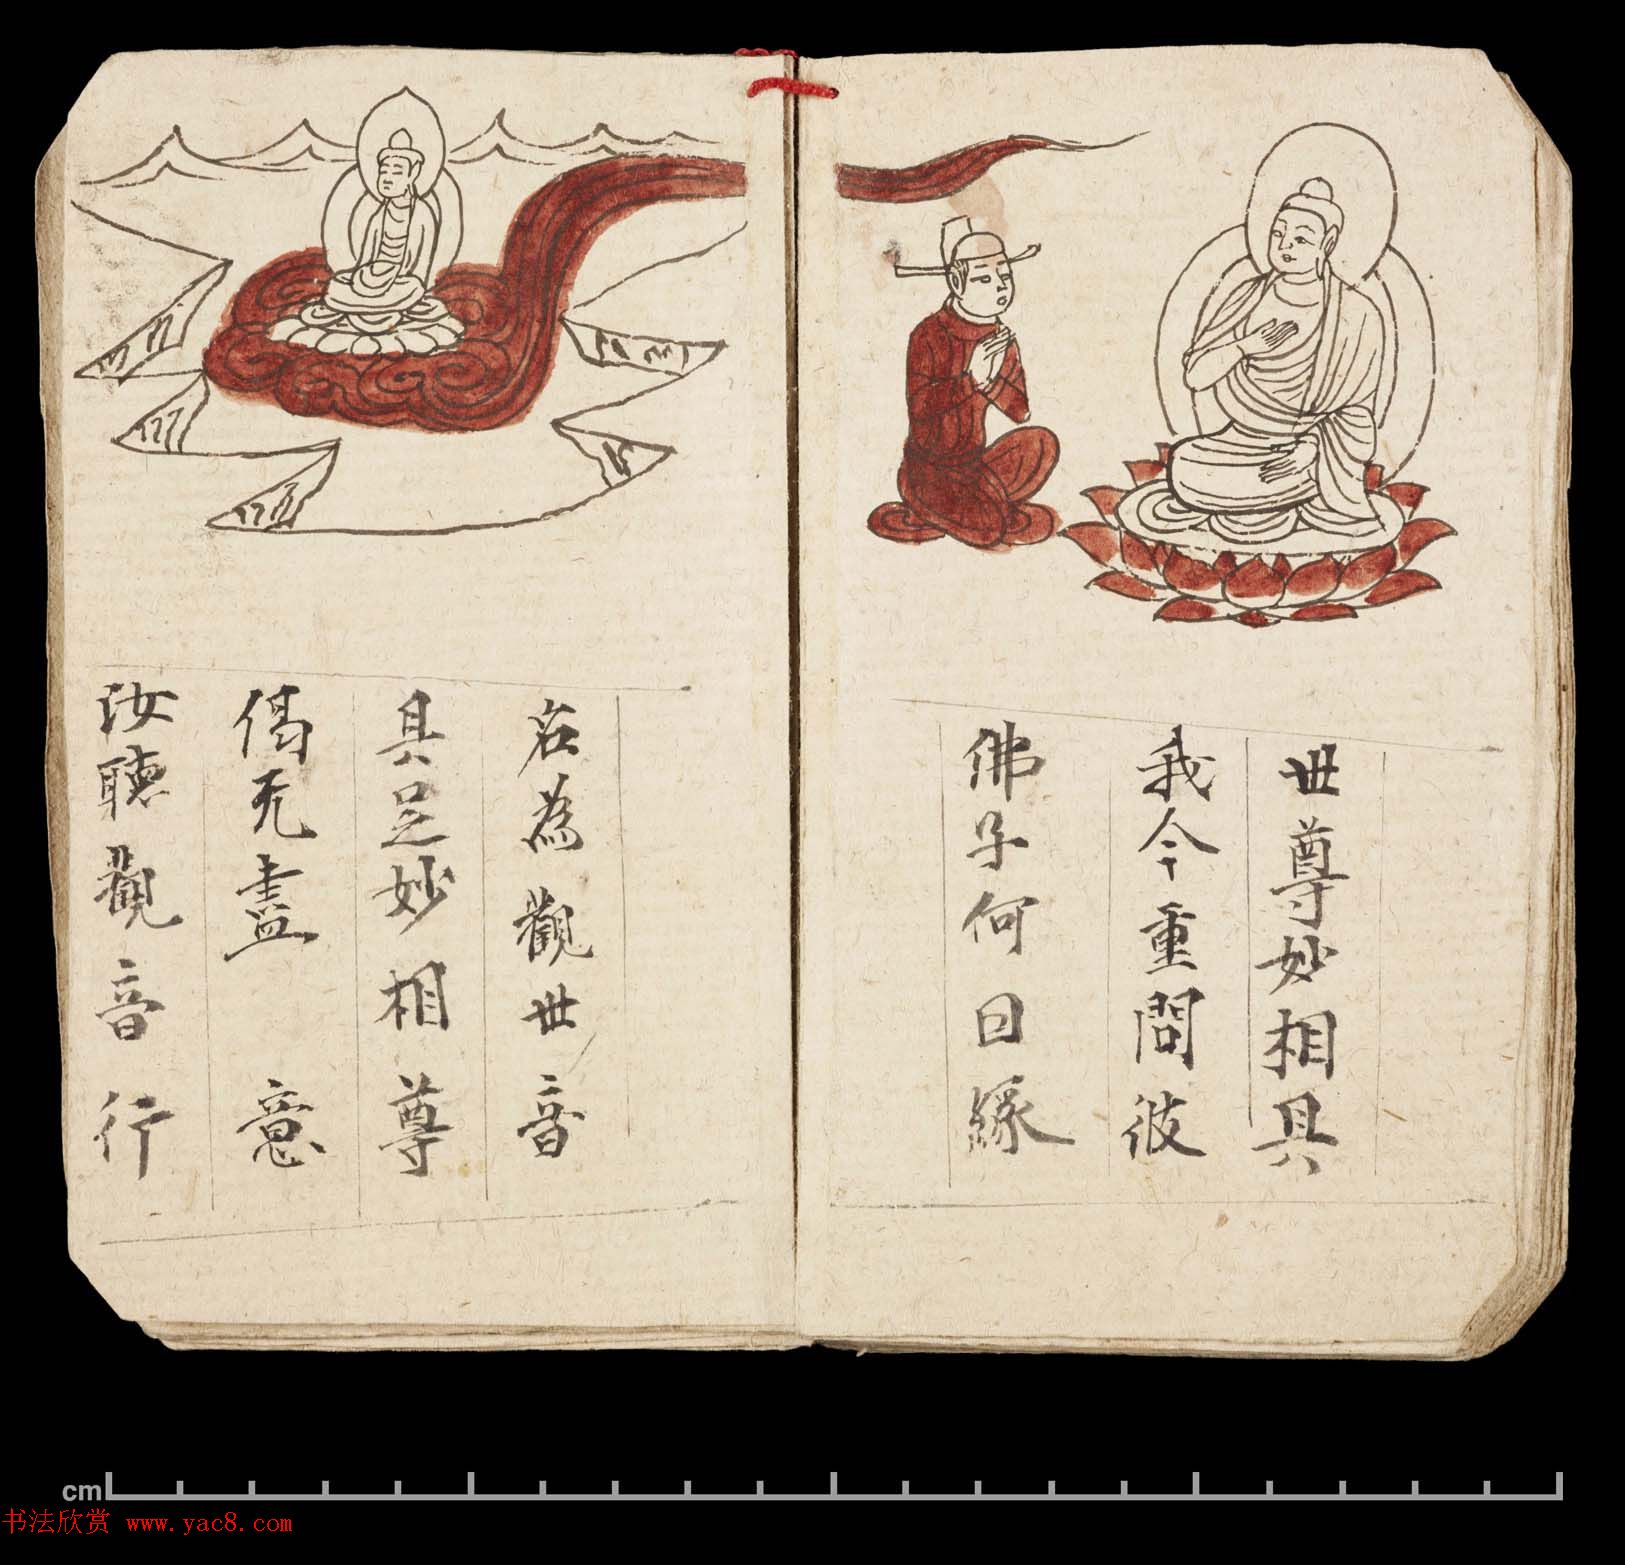 世尊妙相具
我今重問彼
佛子何因緣
名為觀世音
具足妙相尊
偈无盡意
汝聽觀音行
cm
书法欣赏 www.yac8.com